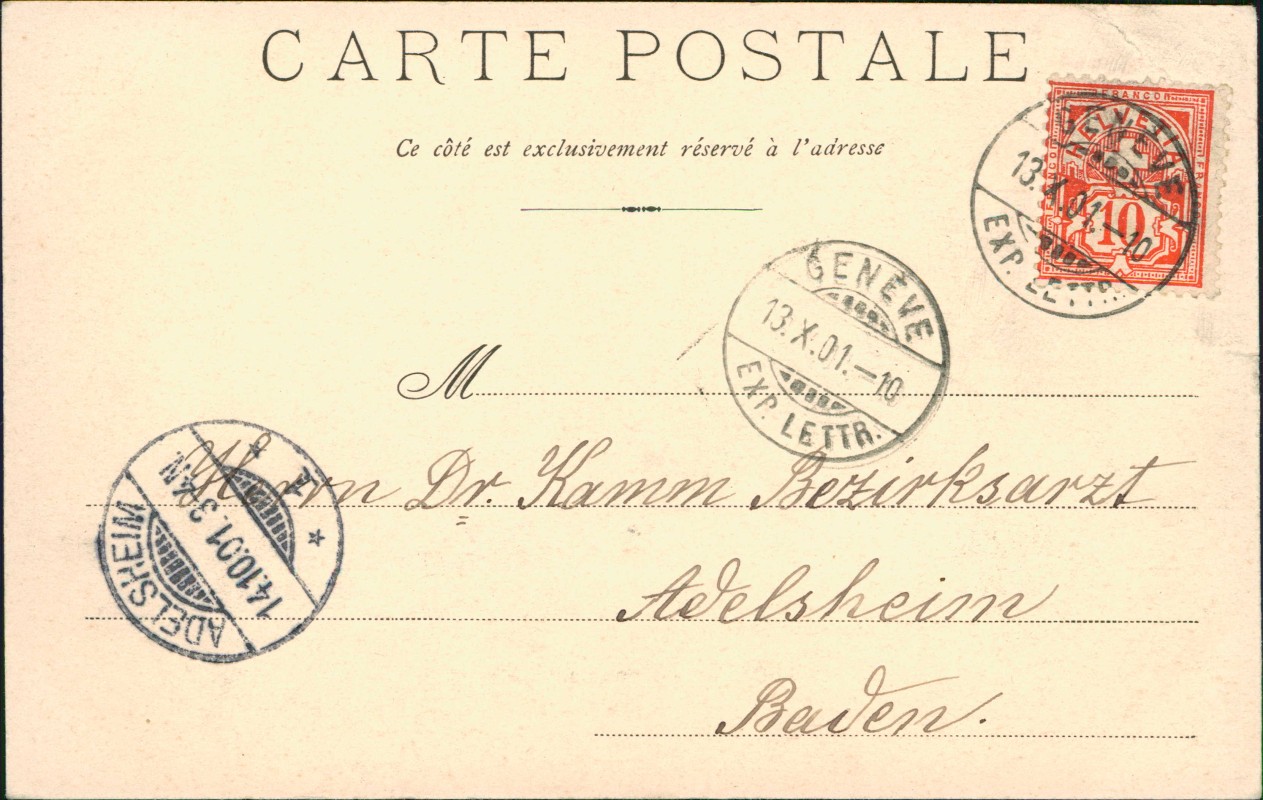 CARTE POSTALE
Ce côté est exclusivement réservé à l'adresse
FRANCO
HELVETIA
10
GENÈVE
13.X.01.–10
EXP. LETTR.
GENÈVE
13.X.01.–10
EXP. LETTR.
M
Herrn Dr. Kamm Bezirksarzt
Adelsheim
Baden.
ADELSHEIM
14.10.01. 3